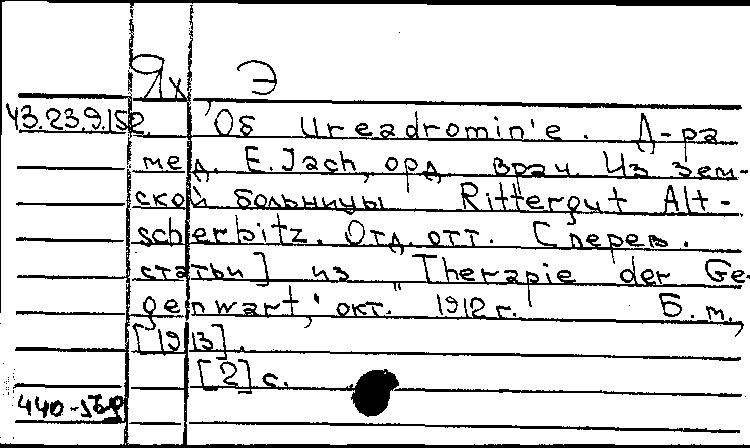 Ях Э
43.23.9.152. Об Ureadromin'е. Д-ра
мед. E. Jach, орд. врач. Из зем-
ской больницы Rittergut Alt-
scherbitz. Отд. отт. [перев.
статьи] из "Therapie der Ge-
genwart," окт. 1912 г. Б. м.,
[1913].
[2] с.